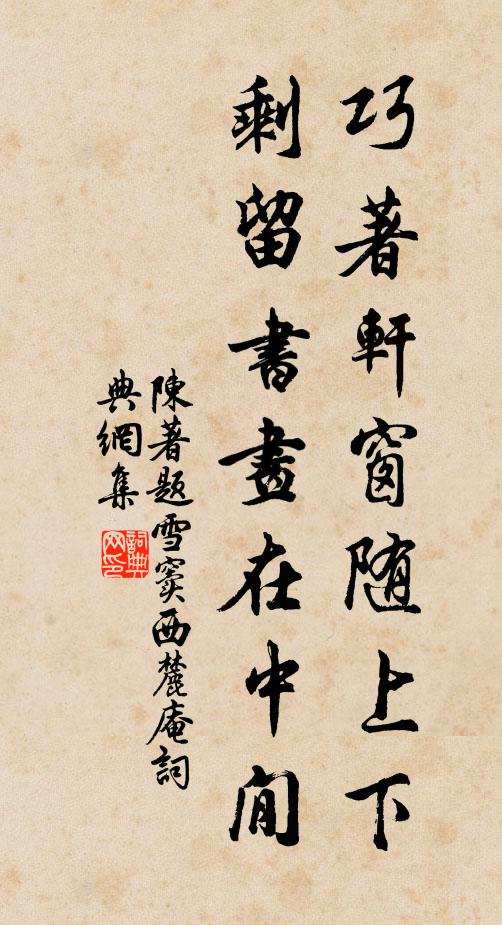 巧著軒窗随上下
剩留書畫在中間
陳著題雪竇西麓庵詞
典網集
詞典网印